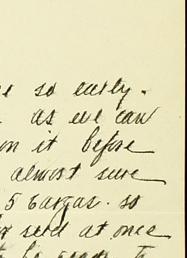 so early.
as we can
on it before
almost sure
5 so
send at once
to